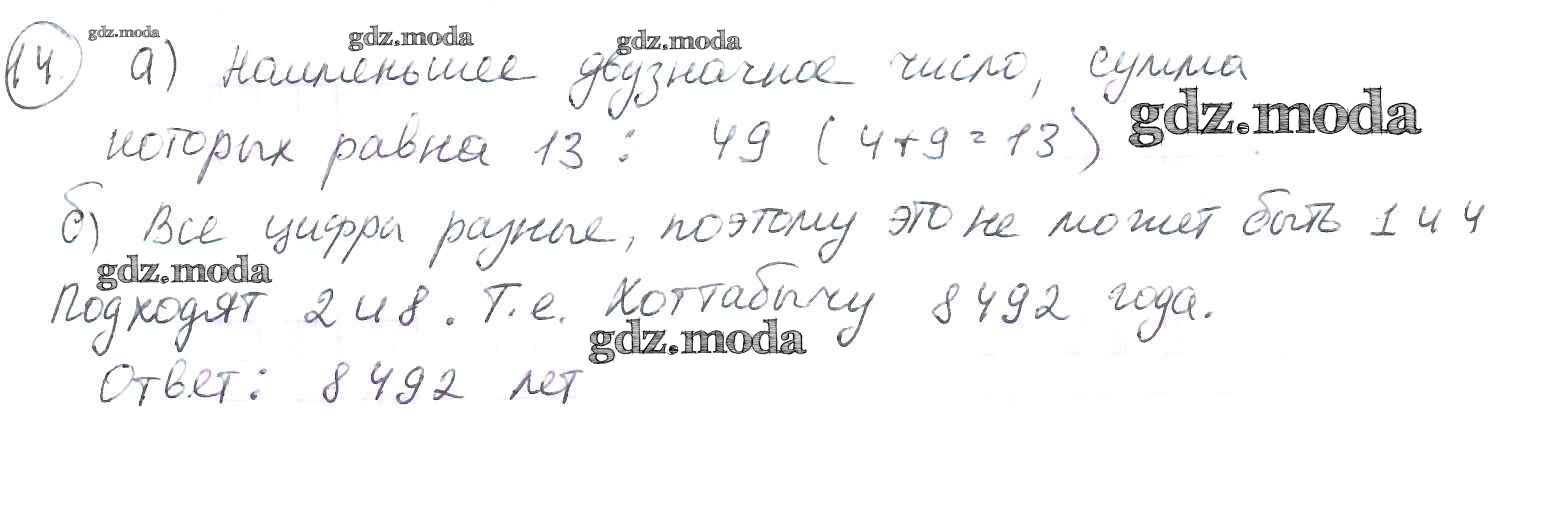 gdz.moda gdz.moda gdz.moda
14 а) Наименьшее двузначное число, сумма
которых равна 13 : 49 (4+9=13) gdz.moda
б) Все цифры разные, поэтому это не может быть 1 и 4
gdz.moda
Подходят 2 и 8. Т.е. Хоттабычу 8492 года.
gdz.moda
Ответ: 8492 лет